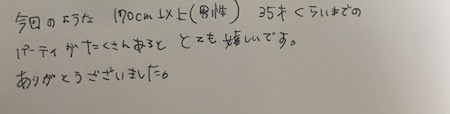 今回のような 170cm以上(男性) 35才くらいまでの
パーティがたくさんあると とても嬉しいです。
ありがとうございました。